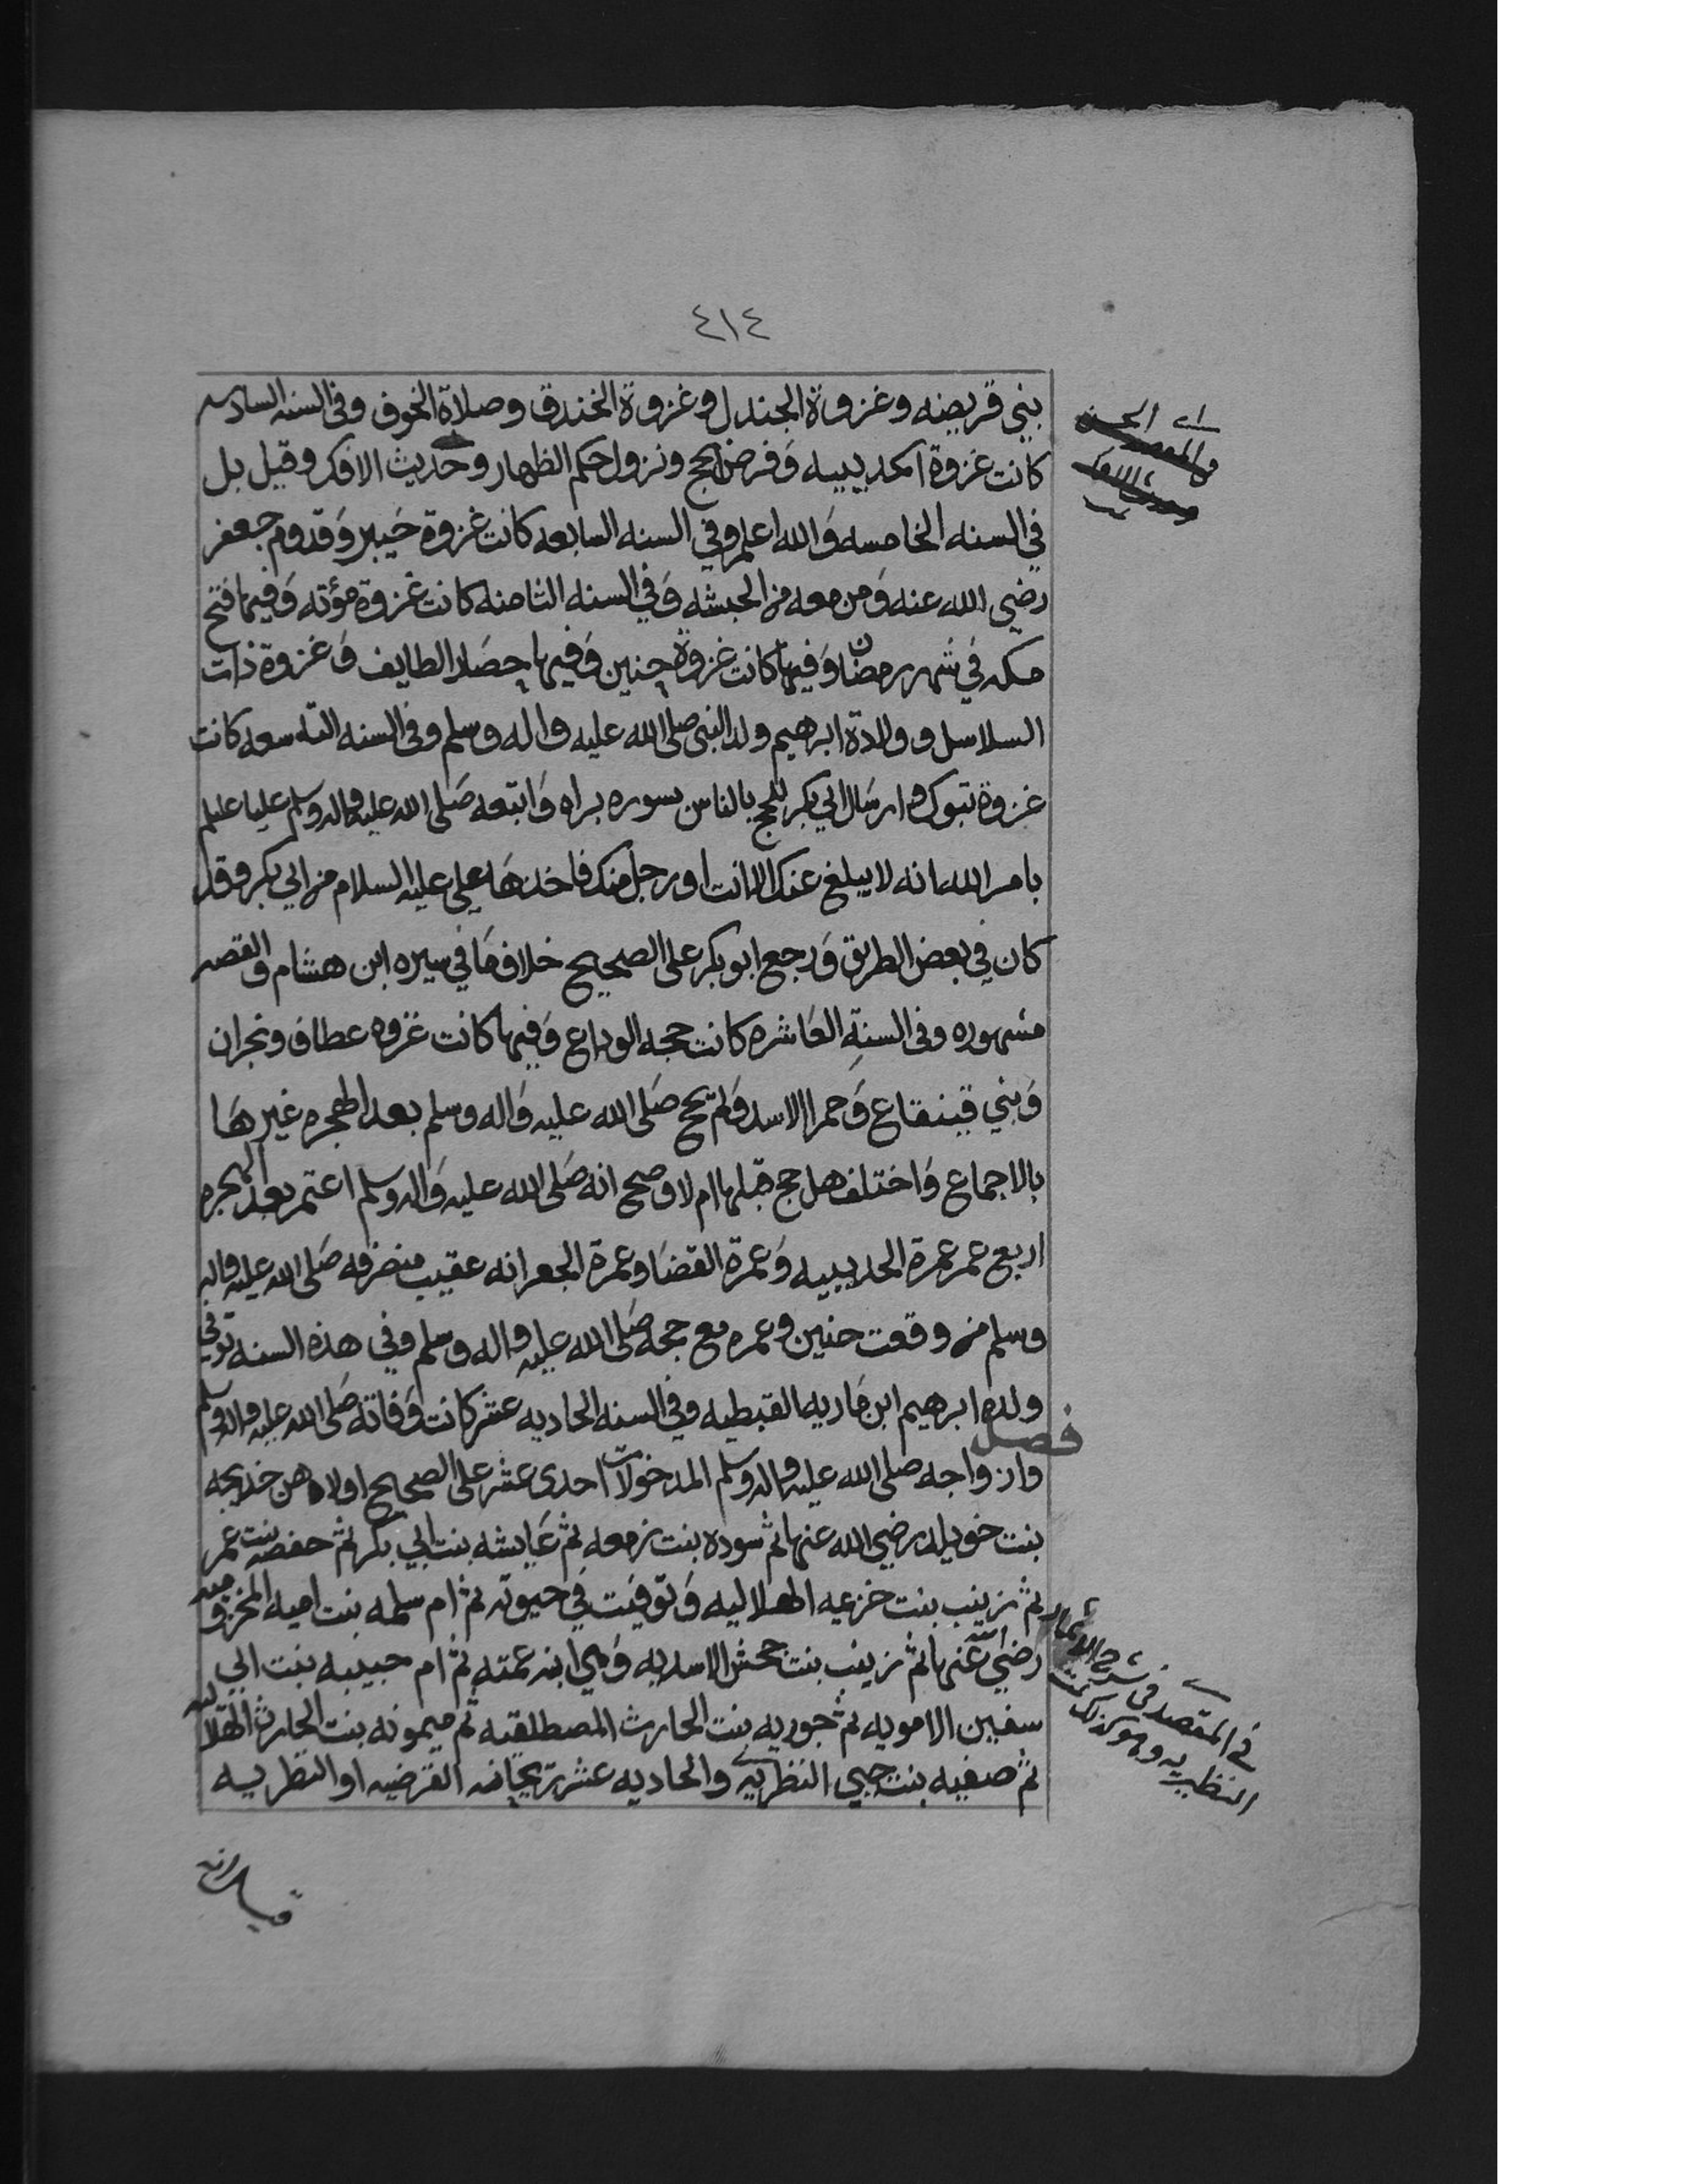 ٤١٤
بني قريضه وغزوة الجندل وغزوة الخندق وصلاة الخوف وفي السنه السادسه
كانت غزوة الحديبيه وفرض الحج ونزول حكم الظهار وحديث الافك وقيل بل
في السنه الخامسه والله اعلم وفي السنه السابعه كانت غزوة خيبر وقدوم جعفر
رضي الله عنه ومن معه من الحبشه وفي السنه الثامنه كانت غزوة مؤته وفيها فتح
مكه في شهر رمضان وفيها كانت غزوة حنين وفيها حصار الطايف وغزوة ذات
السلاسل وولادة ابرهيم ولد النبي صلى الله عليه واله وسلم وفي السنه التاسعه كانت
غزوة تبوك وارسال ابي بكر للحج بالناس بسوره براه واتبعه صلى الله عليه واله وسلم عليا عليلم
بامر الله انه لا يبلغ عنك الا انت او رجل منك فاخذها علي عليه السلام من ابي بكر وقد
كان في بعض الطريق ورجع ابو بكر على الصحيح خلاف ما في سيره ابن هشام والقصه
مشهوره وفي السنة العاشره كانت حجه الوداع وفيها كانت غزوه عطاف ونجران
وبني قينقاع وحمرا الاسد ولم يحج صلى الله عليه واله وسلم بعد الهجره غيرها
بالاجماع واختلف هل حج قبلها ام لا وصح انه صلى الله عليه واله وسلم اعتمر بعد الهجره
اربع عمر عمرة الحديبيه وعمرة القضا وعمرة الجعرانه عقيب منصرفه صلى الله عليه واله
وسلم من وقعت حنين وعمره مع حجه صلى الله عليه واله وسلم وفي هذه السنه توفي
ولده ابرهيم ابن ماريه القبطيه وفي السنه الحاديه عشر كانت وفاته صلى الله عليه واله وسلم
فصل
وازواجه صلى الله عليه واله وسلم المدخولات احدى عشر على الصحيح اولاهن خديجه
بنت خويلد رضي الله عنها ثم سوده بنت زمعه ثم عايشه بنت ابي بكر ثم حفصه بنت عمر
ثم زينب بنت خزيمه الهلاليه وتوفيت في حيوته ثم ام سلمه بنت اميه المخزوميه
رضي الله عنها ثم زينب بنت جحش الاسديه وهي ابنه عمته ثم ام حبيبه بنت ابي
سفين الامويه ثم جويريه بنت الحارث المصطلقيه ثم ميمونه بنت الحارث الهلاليه
ثم صفيه بنت حيي النظريه والحاديه عشر ريحانه القرضيه او النظريه
في المقصد في شرح
النظيريه وهو كذلك